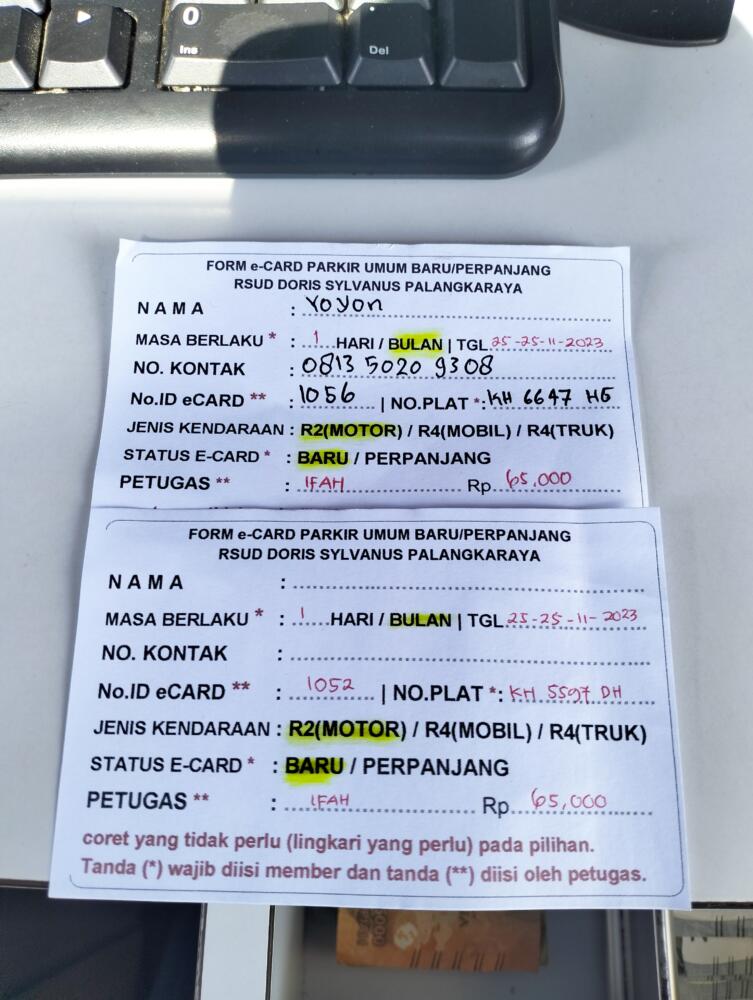 0
Ins
.
Del
FORM e-CARD PARKIR UMUM BARU/PERPANJANG
RSUD DORIS SYLVANUS PALANGKARAYA
N A M A : Yoyon
MASA BERLAKU * : 1 HARI / BULAN | TGL 25-25-11-2023
NO. KONTAK : 0813 5020 9308
No.ID eCARD ** : 1056 | NO.PLAT *: KH 6647 HG
JENIS KENDARAAN : R2(MOTOR) / R4(MOBIL) / R4(TRUK)
STATUS E-CARD * : BARU / PERPANJANG
PETUGAS ** : IFAH Rp. 65.000
FORM e-CARD PARKIR UMUM BARU/PERPANJANG
RSUD DORIS SYLVANUS PALANGKARAYA
N A M A :
MASA BERLAKU * : 1 HARI / BULAN | TGL 25-25-11-2023
NO. KONTAK :
No.ID eCARD ** : 1052 | NO.PLAT *: KH 5597 DH
JENIS KENDARAAN : R2(MOTOR) / R4(MOBIL) / R4(TRUK)
STATUS E-CARD * : BARU / PERPANJANG
PETUGAS ** : IFAH Rp. 65,000
coret yang tidak perlu (lingkari yang perlu) pada pilihan.
Tanda (*) wajib diisi member dan tanda (**) diisi oleh petugas.